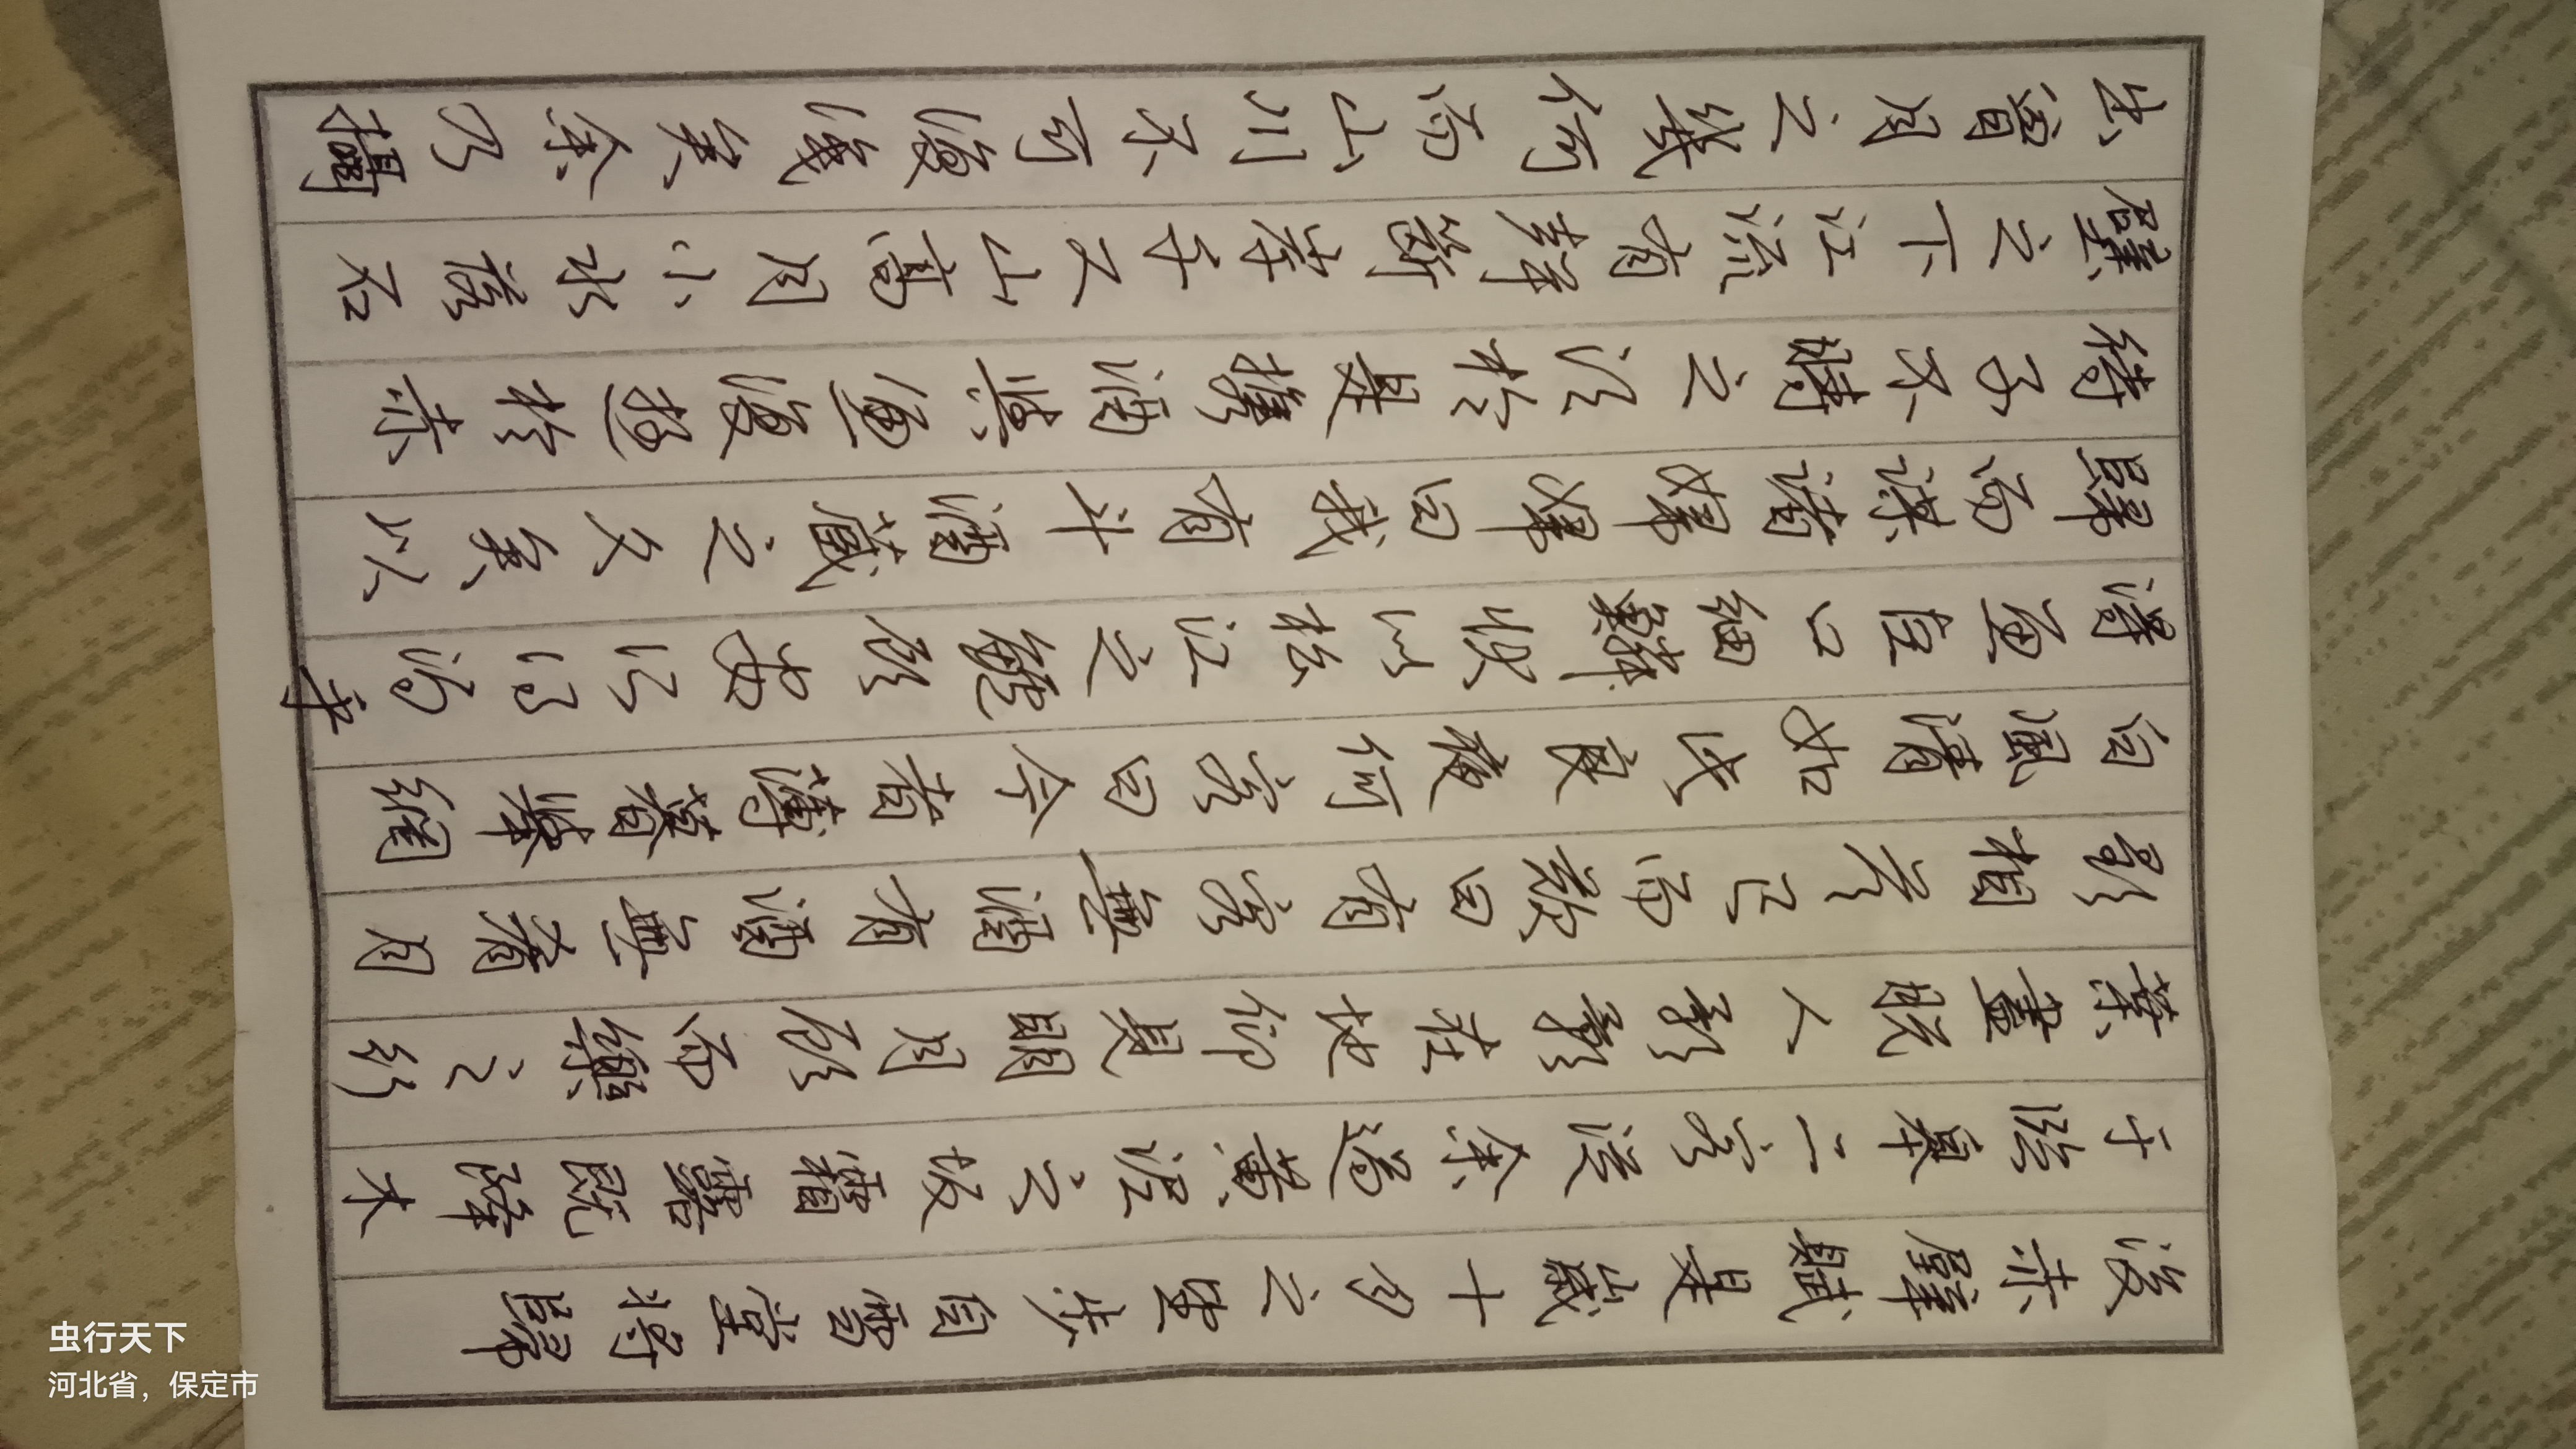 後赤壁賦是歲十月之望步自雪堂將歸
于臨皋二客從余過黃泥之坂霜露既降木
葉盡脫人影影在地仰見明月顧而樂之行
相答已而歎曰有客無酒有酒無肴月
白風清如此良夜何客曰今者薄暮舉網
得魚巨口細鱗狀似松江之鱸顧安所得酒乎
歸而謀諸婦婦曰我有斗酒藏之久矣以
待子不時之須於是攜酒與魚復遊於赤
壁之下江流有聲斷岸千尺山高月小水落石
出曾月之幾何而山川不可復識矣余乃攝
虫行天下
河北省，保定市